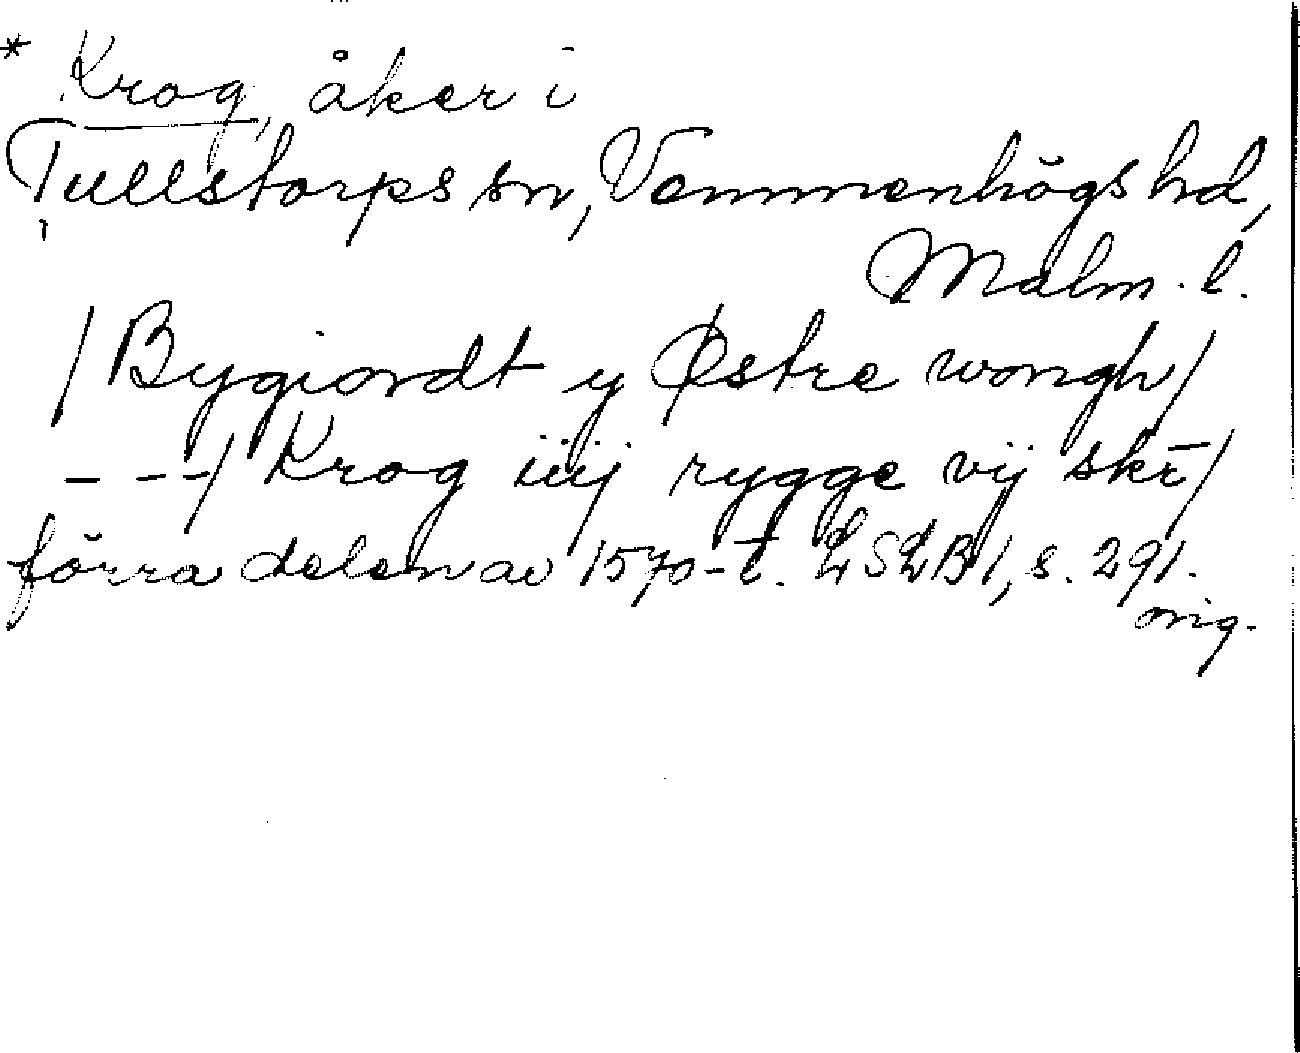 * Krog, åker i
Tullstorps sn, Vemmenhögs hd,
Malm. l.
/ Bygiordt y Østre wongh /
- - - / Krog iiij rygge vij skr /
förra delen av 1570-t. LSLB 1, s. 291.
orig.